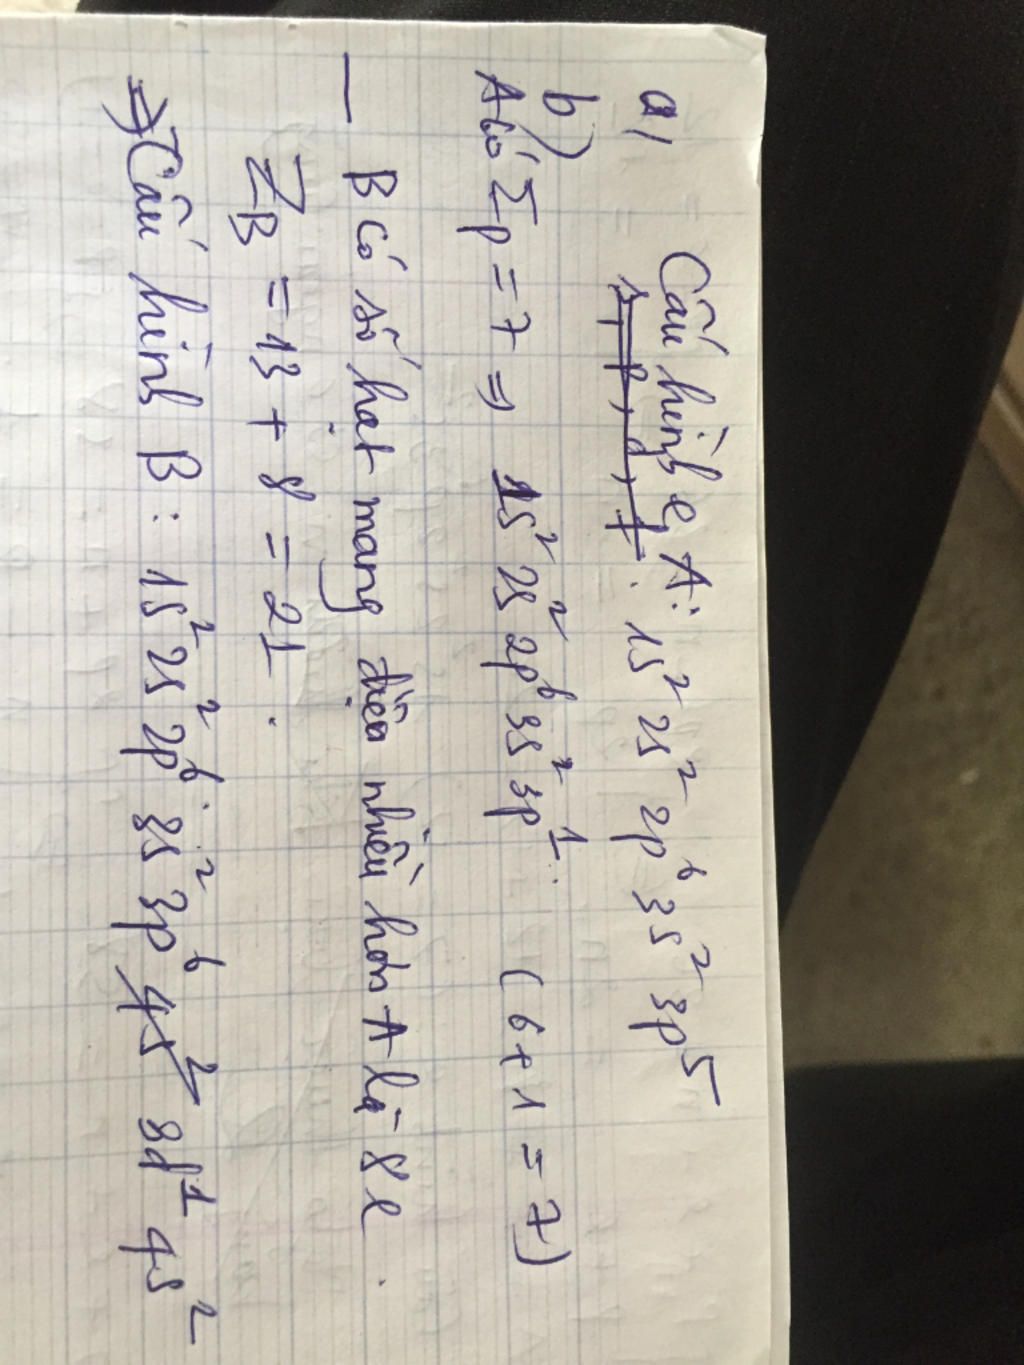 a) Cấu hình e, A: 1s² 2s² 2p⁶ 3s² 3p⁵
s, p, d, f.
b)
A có Σp = 7 => 1s² 2s² 2p⁶ 3s² 3p¹. (6+1 = 7)
— B có số hạt mang điện nhiều hơn A là 8e.
Z_B = 13 + 8 = 21.
=> Cấu hình B: 1s² 2s² 2p⁶ 3s² 3p⁶ 4s² 3d¹ 4s²